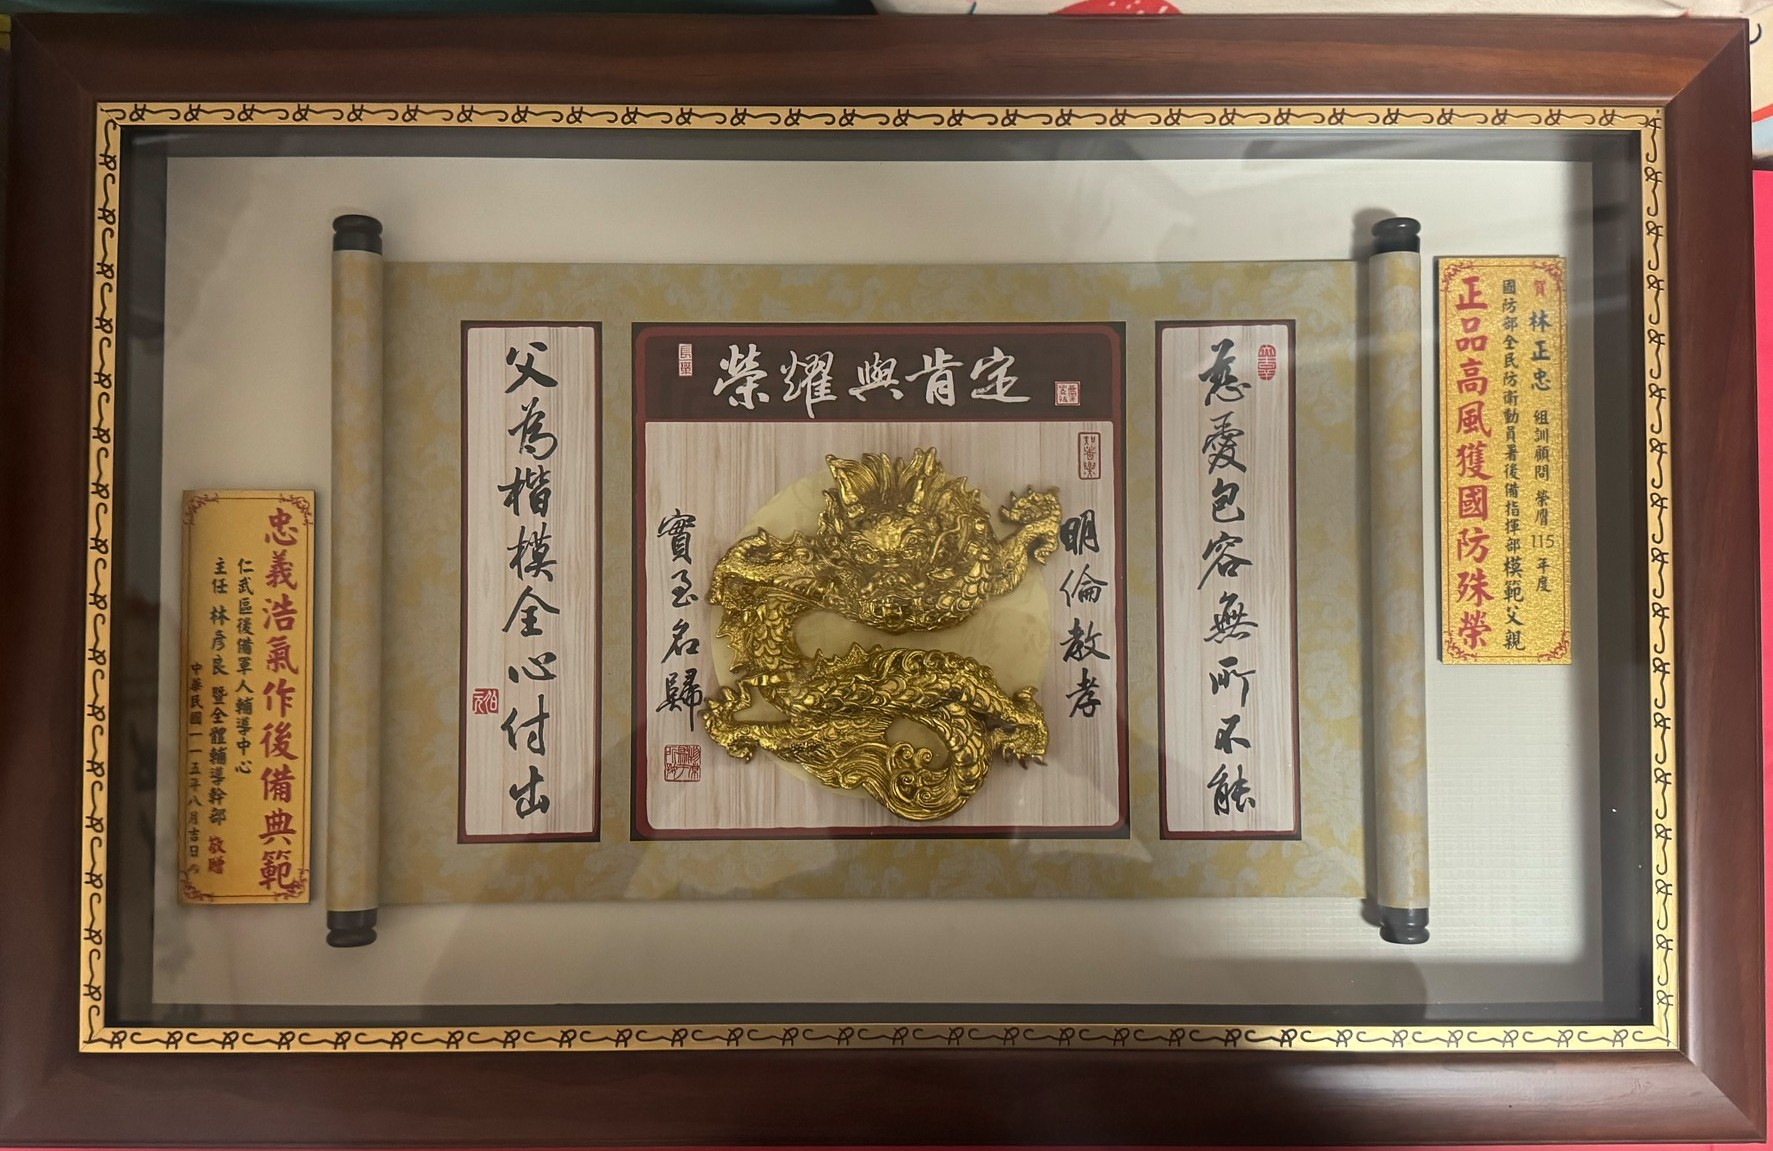 賀 林正忠 組訓顧問 榮膺 115 年度
國防部全民防衛動員署後備指揮部模範父親
正品高風獲國防殊榮
慈愛包容無所不能
榮耀與肯定
明倫教孝
實至名歸
父為楷模全心付出
忠義浩氣作後備典範
仁武區後備軍人輔導中心
主任 林彥良 暨全體輔導幹部 敬贈
中華民國一一五年八月吉日